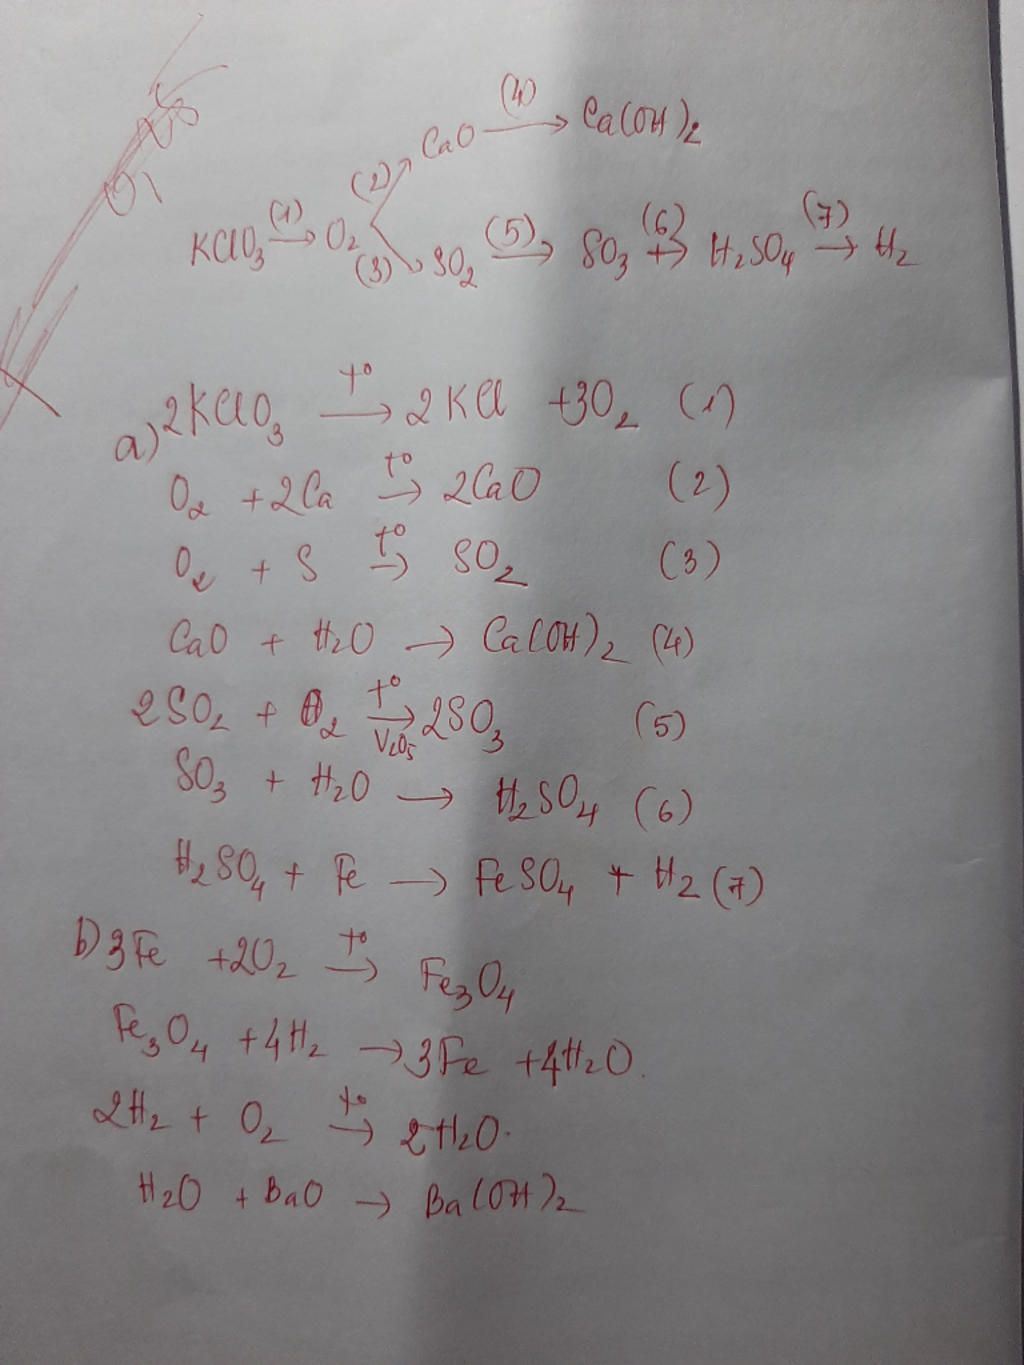 (4)
CaO → Ca(OH)2
(2)
KClO3 (1)→ O2
(3)
SO2 (5)→ SO3 (6)→ H2SO4 (7)→ H2
a) 2KClO3 t°→ 2KCl + 3O2 (1)
O2 + 2Ca t°→ 2CaO (2)
O2 + S t°→ SO2 (3)
CaO + H2O → Ca(OH)2 (4)
2SO2 + O2 t°→ V2O5 2SO3 (5)
SO3 + H2O → H2SO4 (6)
H2SO4 + Fe → FeSO4 + H2 (7)
b) 3Fe + 2O2 t°→ Fe3O4
Fe3O4 + 4H2 → 3Fe + 4H2O.
2H2 + O2 t°→ 2H2O.
H2O + BaO → Ba(OH)2